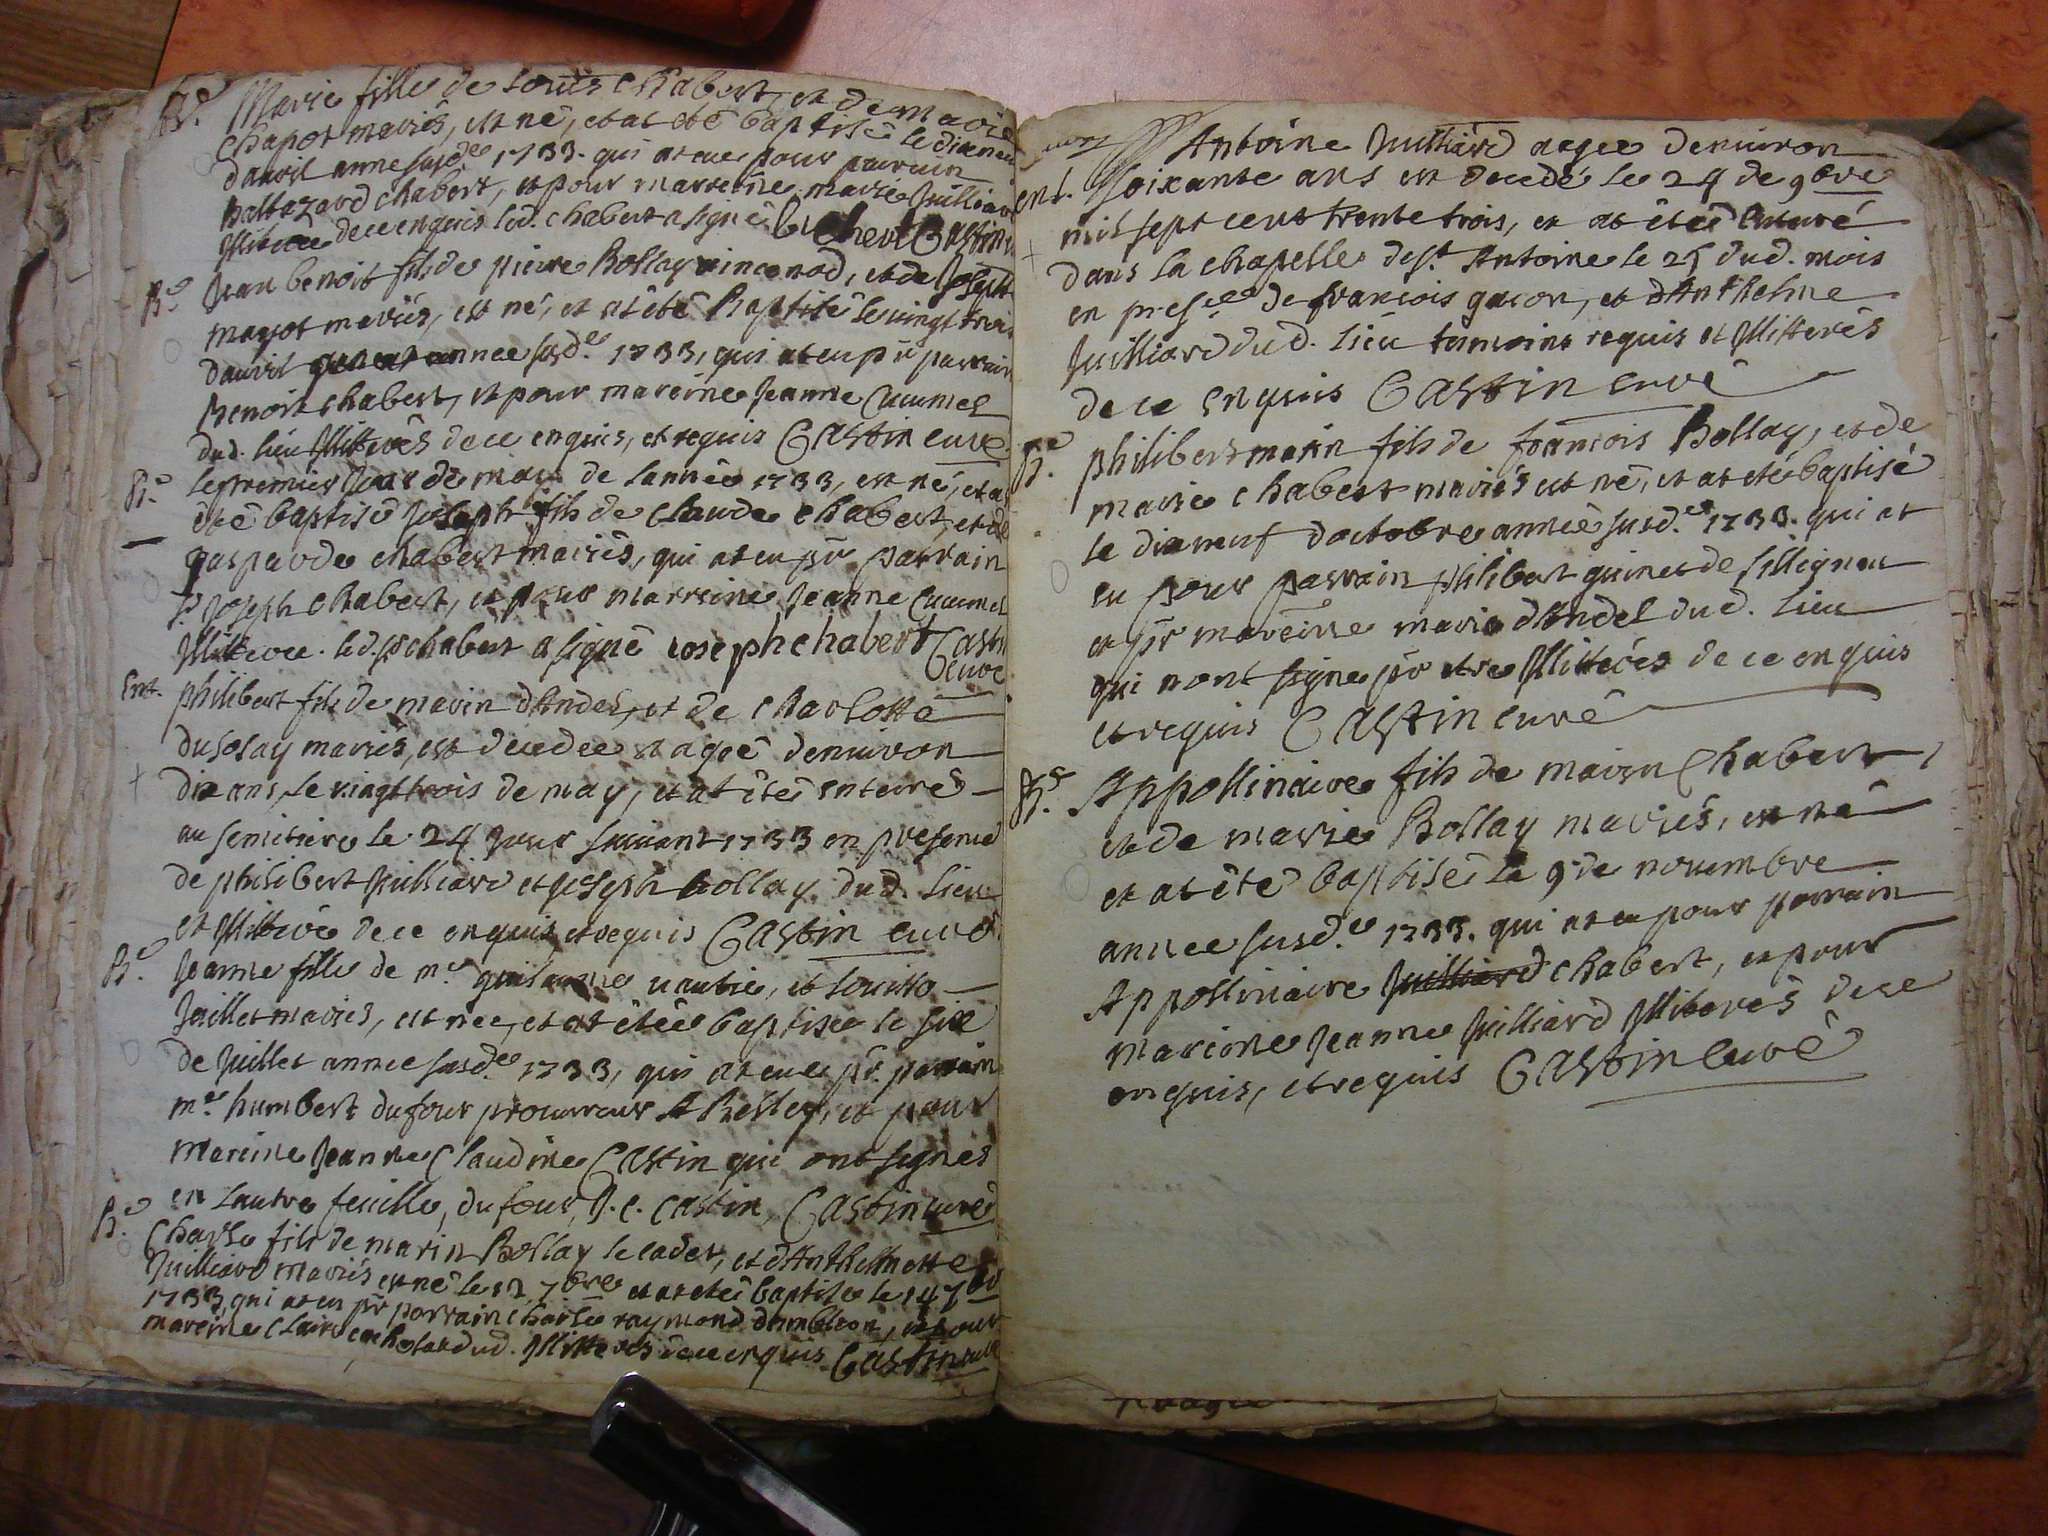 Be. Marie fille de Louis Chabert, et de marie
chapot mariés, est né, et at eté baptisé le dixneu
davril anne susde 1733. qui at eue pour parrain
Baltazard chabert, et pour marreine marie Juilliard
Illiterée de ce enquis led. chabert a signé Castin
Be. Jean benoit fils de pierre Bollay vincenod, et de Joseph
mayot mariés, est né, et at été Baptisé le vingt trois
davril annee susde. 1733, qui at eu pr parrain
Benoit chabert, et pour mareine Jeanne Cucumel
dud. lieu Illiterés de ce enquis, et requis Castin curé
Be. le premier Jour de may de lannée 1733, est né, et at
été baptisé Joseph fils de Claude Chabert, et de
gasparde chabert mariés, qui at eu pr parrain
Sr Joseph Chabert, et pour marreine Jeanne Cucumel
Illiteree. led. sr chabert a signé Joseph chabert Castin
curé
Ent. philibert fils de marin dAndel, et de Charlotte
dusolay mariés, est decedee et agée denuiron
dix ans, le vingt trois de may, et at été enteiré
au semitiere le 24 Jour suiuant 1733 en presence
de philibert Juilliard et Joseph bollay dud. lieu
et Illiteré de ce enquis et requis Castin curé
Be. Jeanne fille de me. guilaume uautie, et Louise
Juillet mariés, est née, et at étée baptisée le six
de Juillet annee susde. 1733, qui at eue pr. parrain
me. humbert dufour procureur A Belley, et pour
mareine Jeanne Claudine Castin qui ont signés
en lautre feuille, dufour, J. C. Castin, Castin curé
Be. Charle fils de marin Bollay le cadet, et dAnthelmette
Juilliard mariés est né le 13 7bre et at eté baptisé le 14 7bre
1733, qui at eu pr parrain Charle raymond dambleon, et pour
mareine Claire dud. Illiterés de ce enquis Castin curé
Antoine Juilliard agee denuiron
ent. soixante ans est decedé le 24 de 9bre
mil sept cent trente trois, et at étée enteré
dans la chapelle de st. Antoine le 25 dud. mois
en presce de francois gacon, et dAnthelme
Juilliard dud. lieu temoins requis et Illiterés
de ce enquis Castin curé
Be. philibert marin fils de francois Bollay, et de
marie chabert mariés est né, et at eté baptisé
le dixneuf doctobre annee susde. 1733. qui at
eu pour parrain philibert guinet de silligneu
et pr mareine marie dAndel dud. lieu
qui nont signe pr etre Illiterés de ce enquis
et requis Castin curé
Be. Appollinaire fils de marin Chabert,
et de marie Bollay mariés, est né
et at été baptisé le 9 de nouembre
annee susde. 1733. qui at eu pour parrain
Appollinaire Juilliard chabert, et pour
mareine Jeanne Juilliard Illiterés de ce
enquis, et requis Castin curé